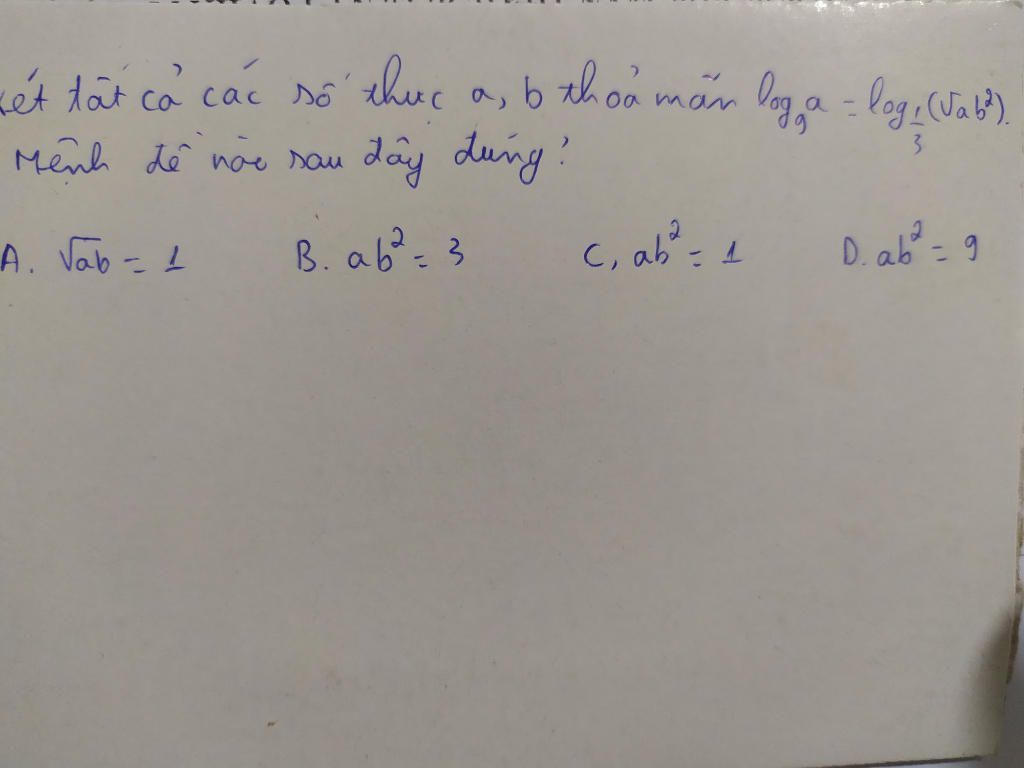 xét tất cả các số thực a, b thoả mãn log₉a = log_{1/3}(√ab²).
Mệnh đề nào sau đây đúng?
A. √ab = 1 B. ab² = 3 C, ab² = 1 D. ab² = 9